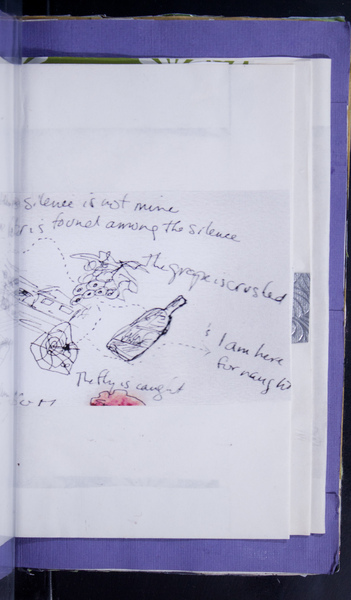 silence is not mine
is found among the silence
The grape is crushed
I am here
for naught
The fly is caught